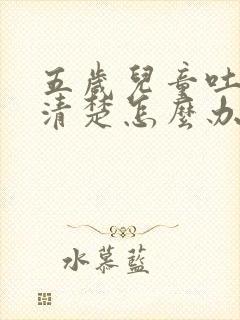 五歲兒童吐
清楚怎麼办
水慕藍